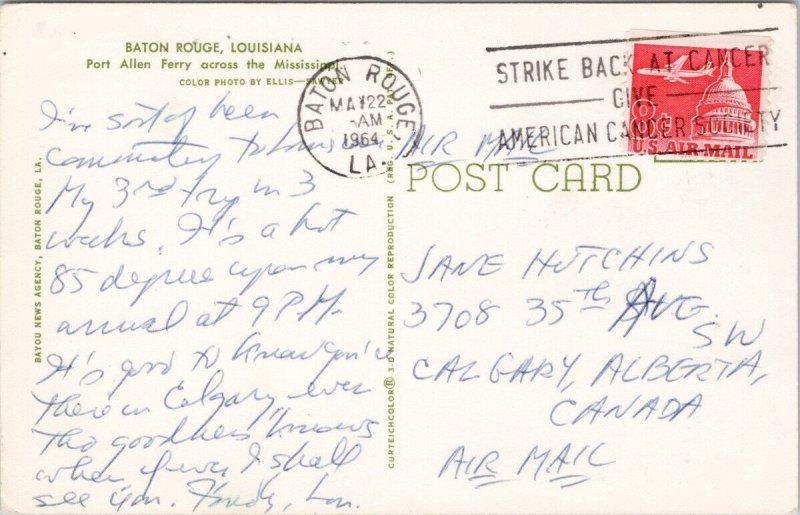 BATON ROUGE, LOUISIANA
Port Allen Ferry across the Mississippi
COLOR PHOTO BY ELLIS—SAWYER
BATON ROUGE,
MAY 22
AM
1964
LA.
STRIKE BACK AT CANCER
GIVE
AMERICAN CANCER SOCIETY
8¢
U.S. AIR MAIL
AIR MAIL
POST CARD
I've sort of been
commuting to
My 3rd try in 3
weeks. It's a hot
85 degree upon my
arrival at 9 P.M.
It's good to know you're
there in Calgary, even
tho goodness knows
when if ever I shall
see you. Fondly, Lou.
JANE HUTCHINS
3708 35th AVE.
SW
CALGARY, ALBERTA,
CANADA
AIR MAIL
BAYOU NEWS AGENCY, BATON ROUGE, LA.
CURTEICHCOLOR® 3-D NATURAL COLOR REPRODUCTION (REG. U.S.A. PAT. OFF.)